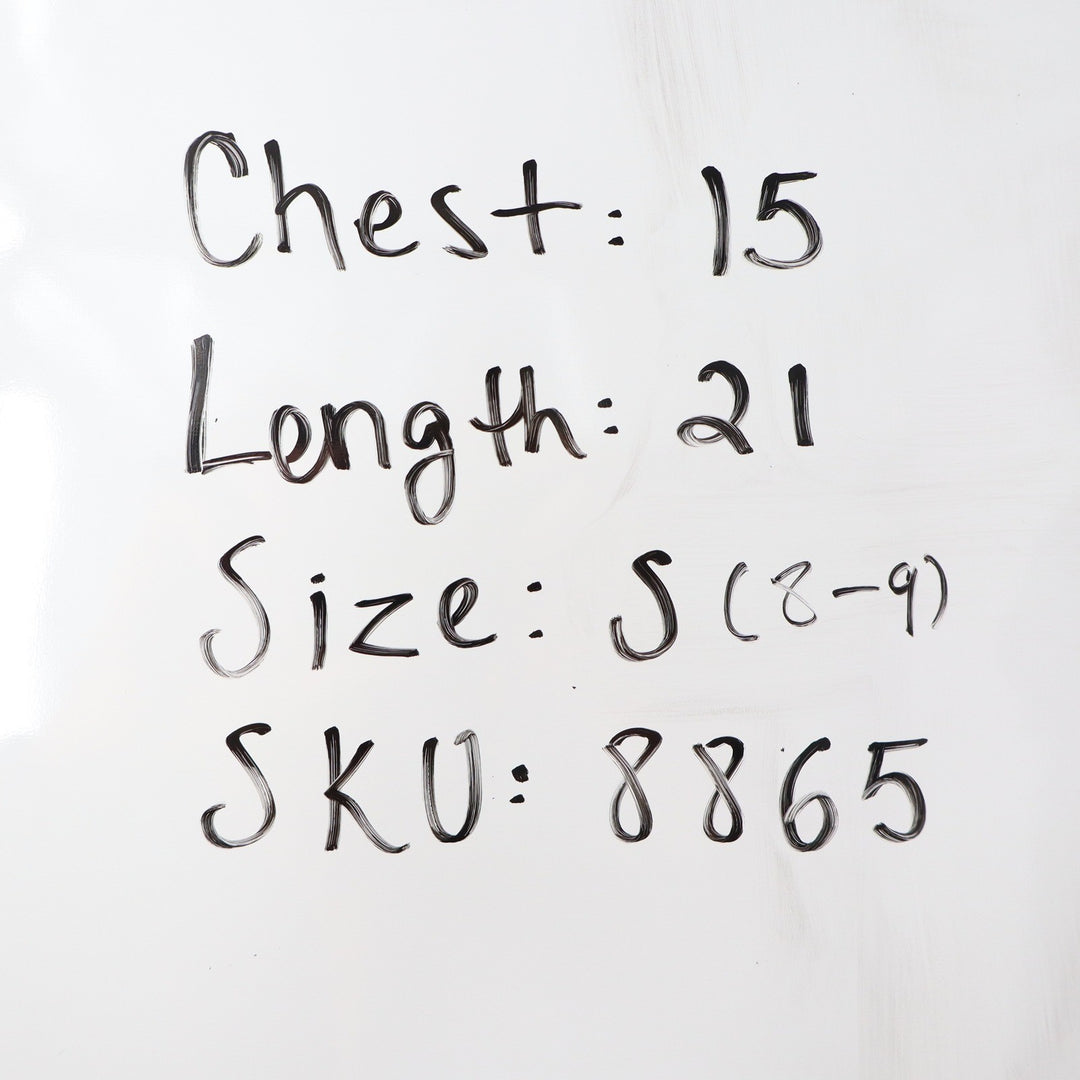 Chest: 15
Length: 21
Size: S (8-9)
SKU: 8865